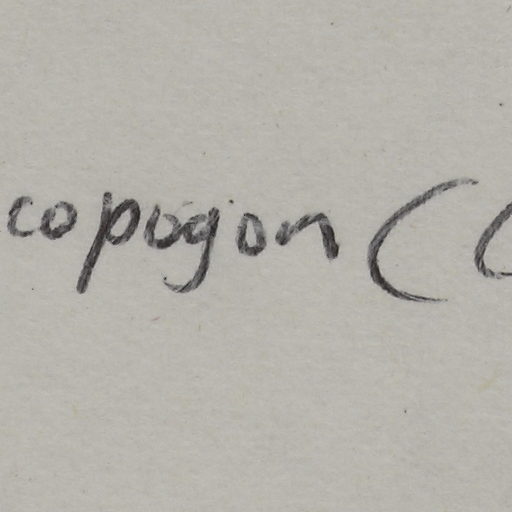 copogon (